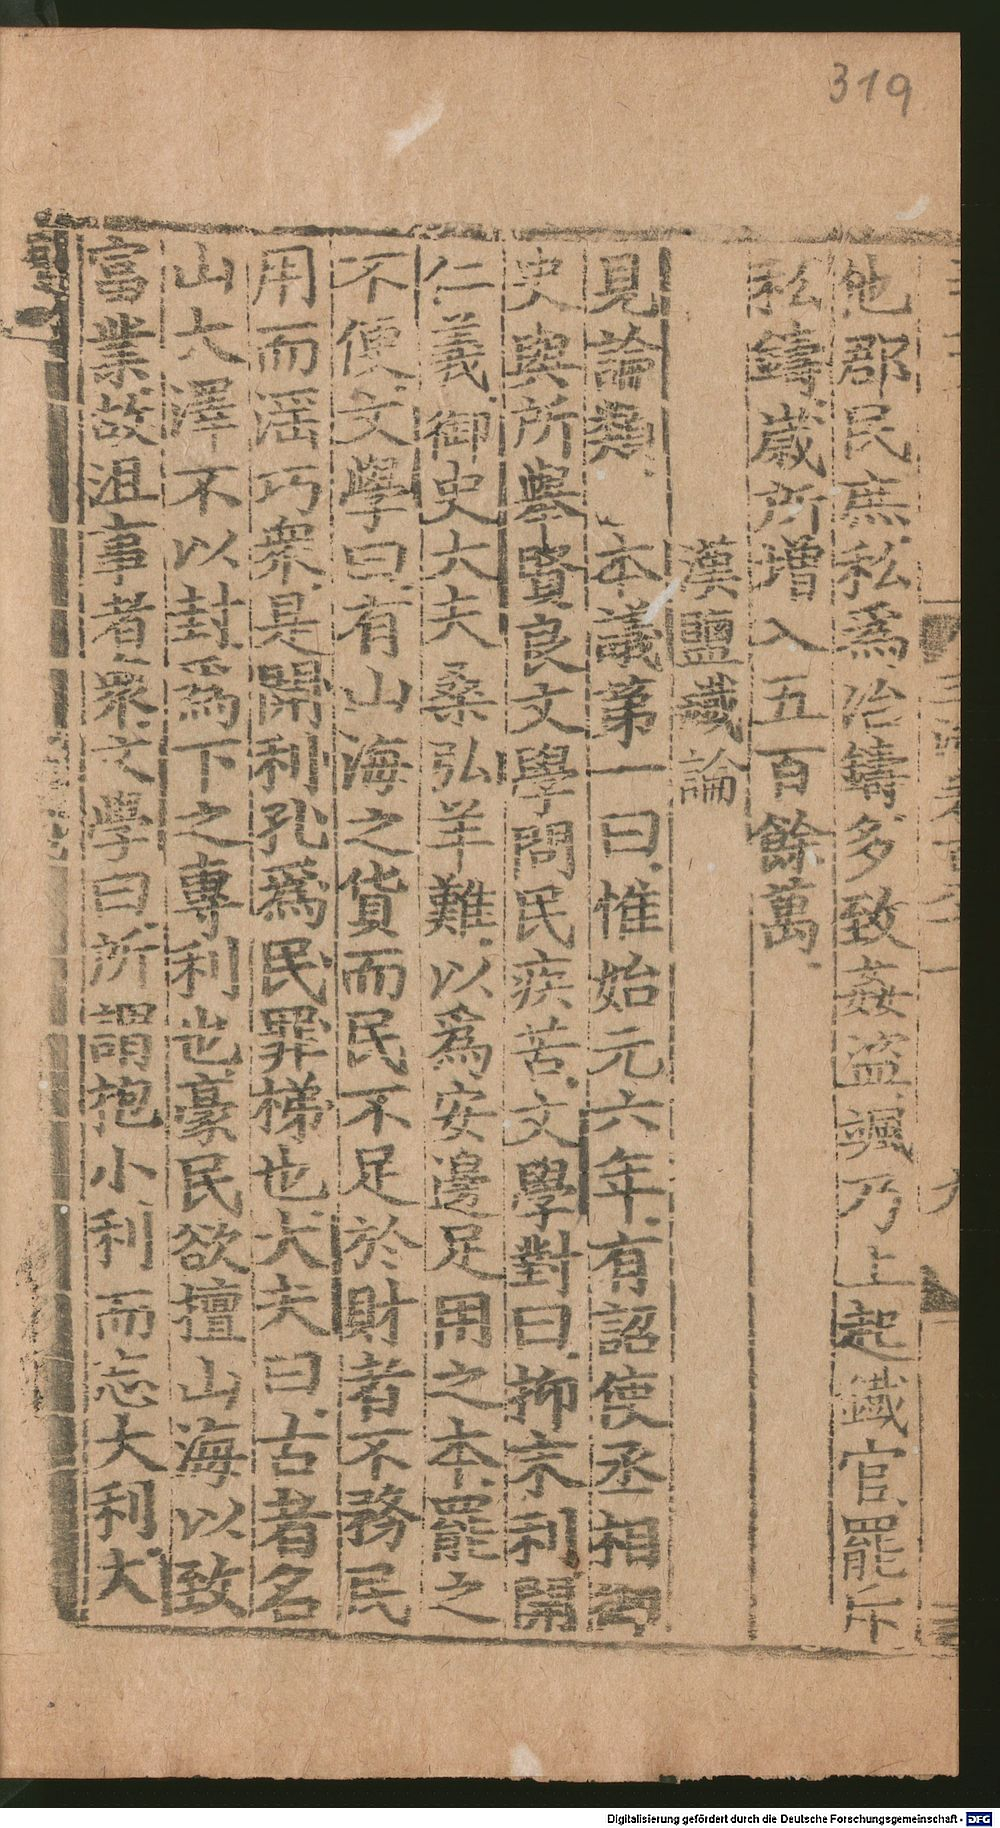 319
他郡民庶私爲冶鑄多致姦盗颯乃上起鐵官罷斥
私鑄歳所增入五百餘萬
漢鹽鐵論
見論 本議第一曰惟始元六年有詔使丞相御
史與所舉賢良文學問民疾苦文學對曰抑末利開
仁義御史大夫桑弘羊難以爲安邊足用之本罷之
不便文學曰有山海之貨而民不足於財者不務民
用而滛巧衆是開利孔爲民罪梯也大夫曰古者名
山大澤不以封爲下之專利也豪民欲擅山海以致
富業故沮事者衆文学曰所謂抱小利而忘大利大
Digitalisierung gefördert durch die Deutsche Forschungsgemeinschaft - DFG